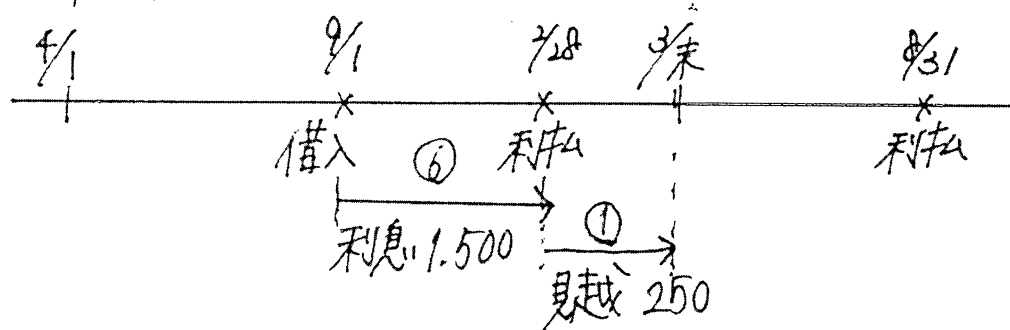 4/1 9/1 2/28 3/末 8/31
借入 ⑥ 利払 利払
利息 1.500 ①
見越 250